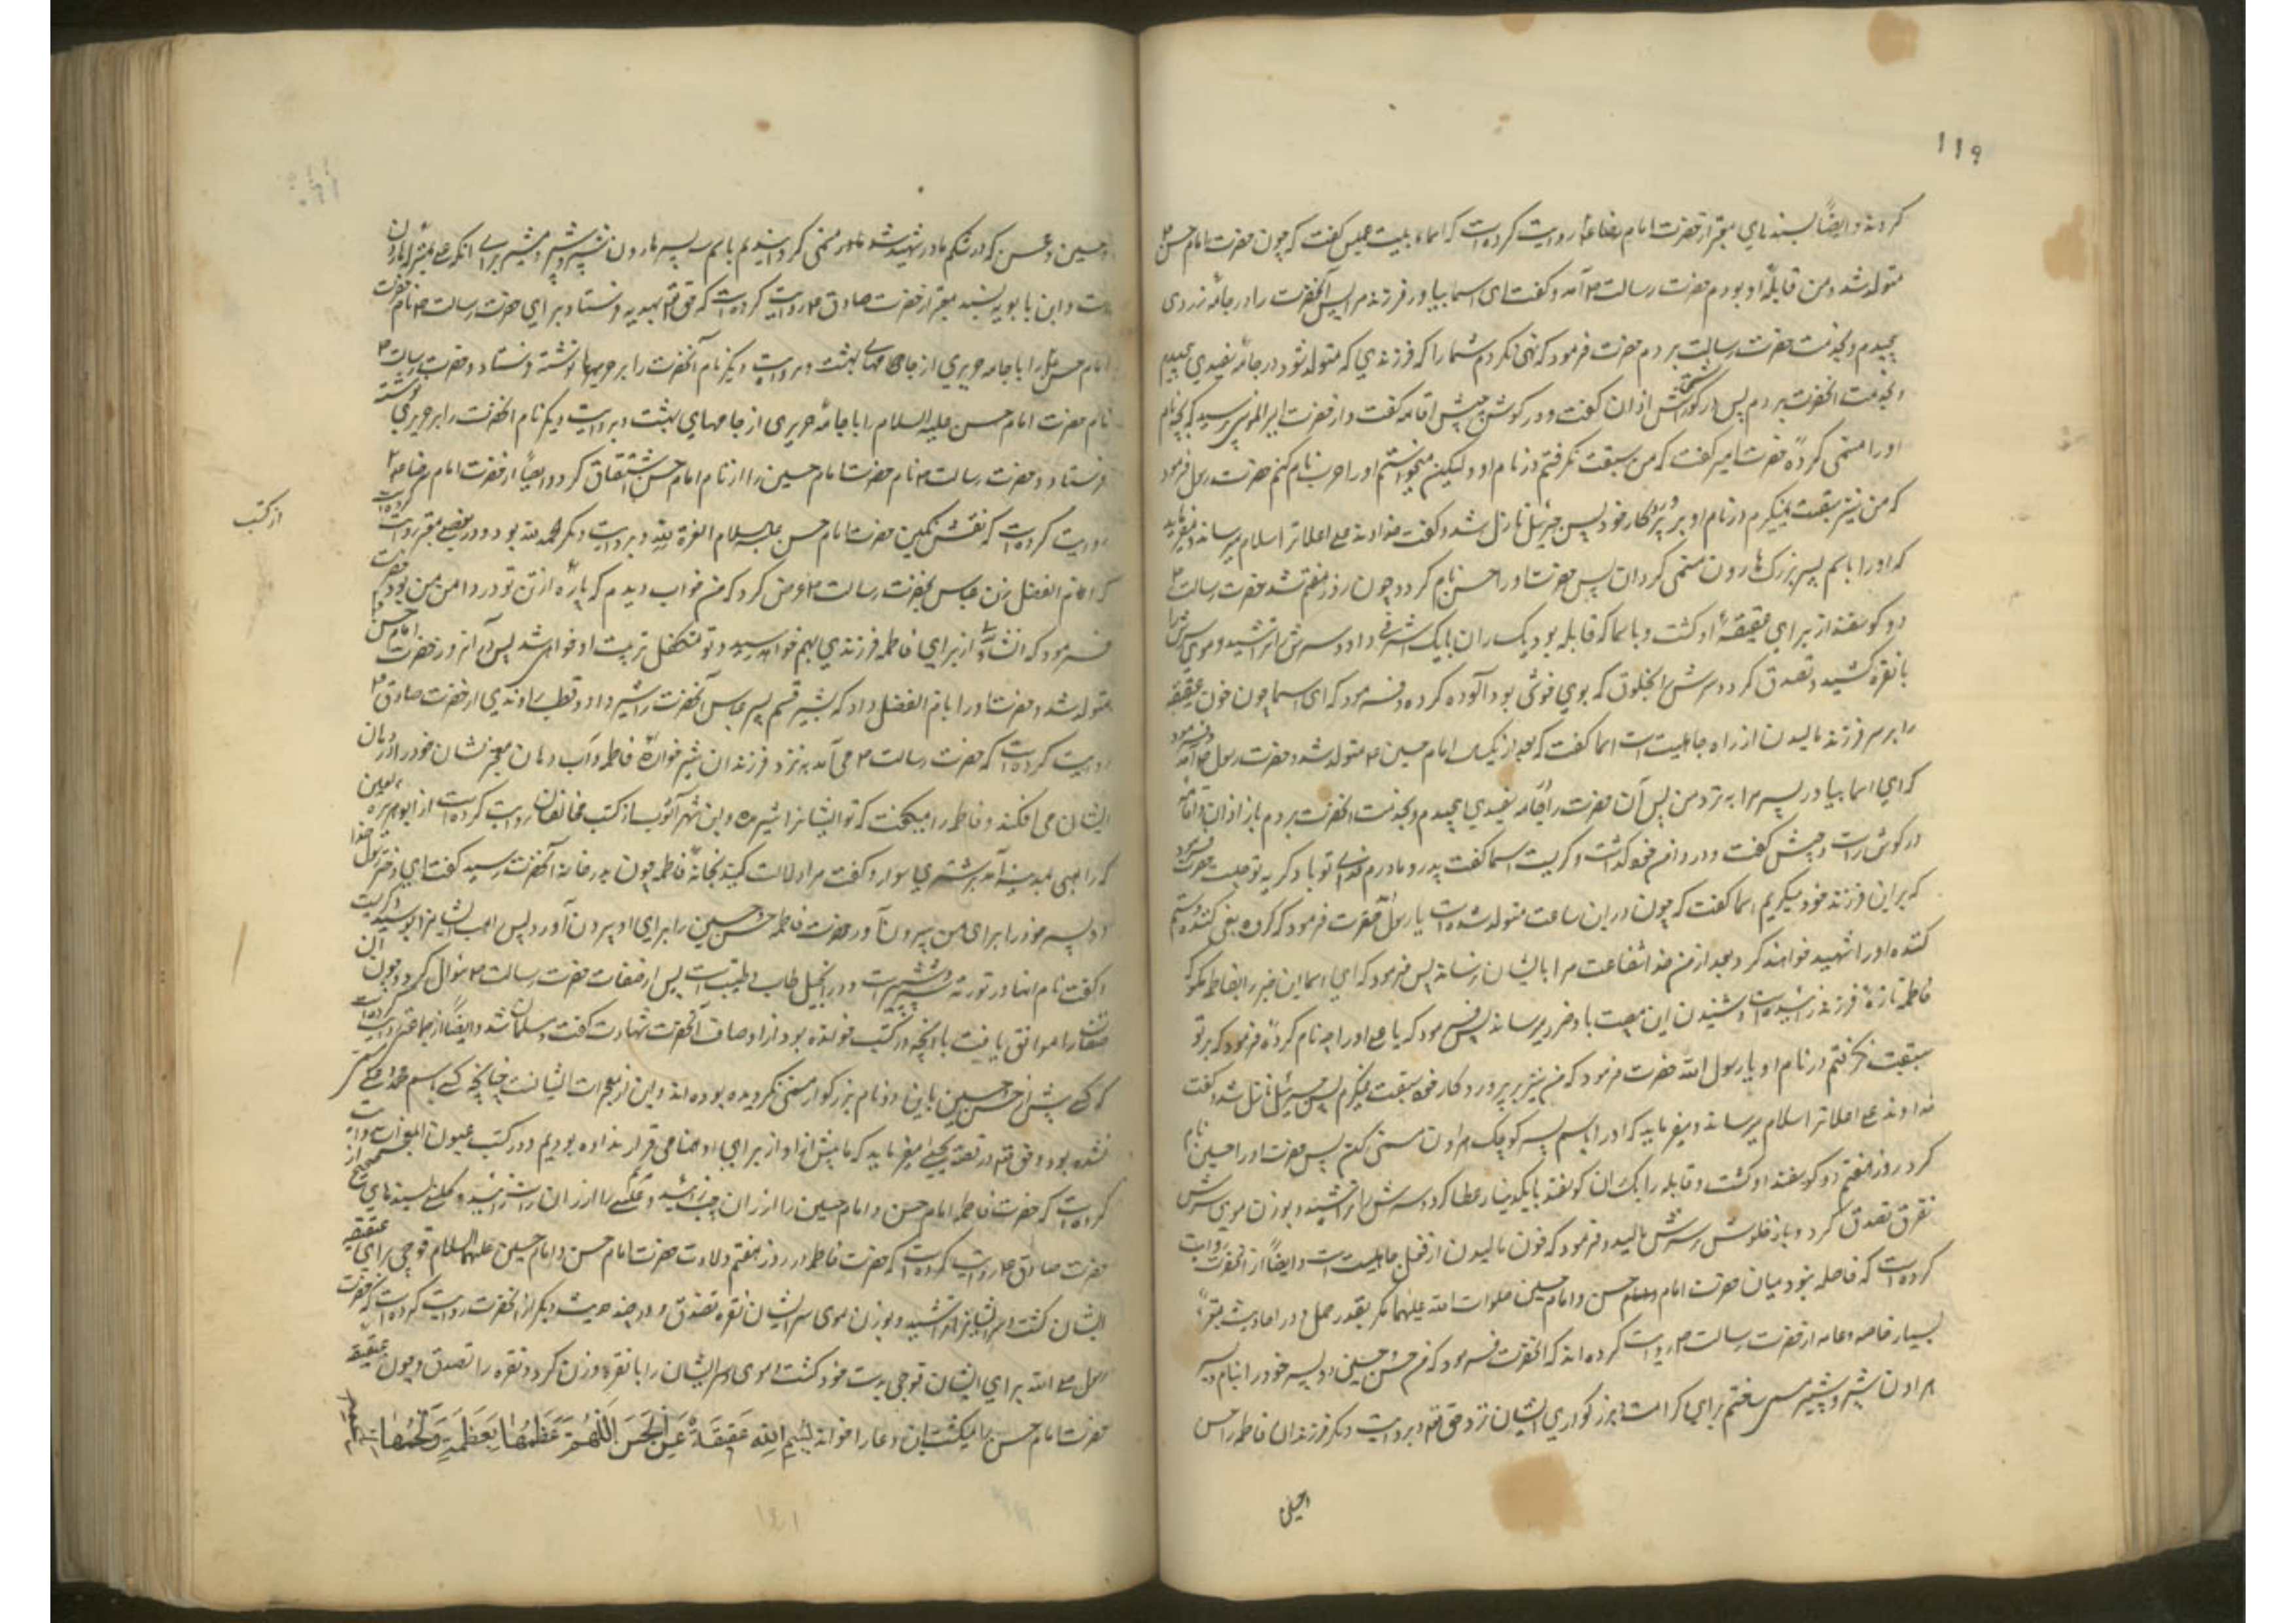 ۱۱۹
کردند و ایضاً بسندهای معتبر از حضرت امام رضا ع روایت کرده است که اسماء بنت عمیس گفت که چون حضرت امام حسن ع
متولد شد و من قابلهٔ او بودم حضرت رسالت ص آمد و گفت ای اسما بیاور فرزند مرا پس آنحضرت را در جامهٔ زردی
پیچیدم و بخدمت حضرت رسالت بردم حضرت فرمود که نهی نکردم شما را که فرزندی که متولد شود در جامهٔ سفیدی پیچیدم
و بخدمت آنحضرت بردم پس در گوش راستش اذان گفت و در گوش چپش اقامه گفت و از حضرت امیر المومنین پرسید که چه نام
او را مسمی کردهٔ حضرت امیر گفت که من سبقت نگرفتم در نام او و لیکن میخواستم او را حرب نام کنم حضرت رسول فرمود
که من نیز سبقت نمیگیرم در نام او بر پروردگار خود پس جبرئیل نازل شد و گفت خداوند علی اعلا ترا سلام میرساند و میفرماید
که او را باسم پسر بزرگ هارون مسمی گردان پس حضرت او را حسن نام کرد و چون روز هفتم شد حضرت رسالت ص
دو گوسفند از برای عقیقهٔ او کشت و باسما که قابله بود یک ران با یک اشرفی داد و سرش را تراشید و موی سرش را
با نقره کشید و تصدق کرد و سرش را بخلوق که بوی خوشی بود آلوده کرده و فرمود که ای اسما چون خون عقیقه
را بر سر فرزند مالیدن از راه جاهلیت است اسما گفت که بعد از یکسال امام حسین ع متولد شد و حضرت رسول ص آمد و فرمود
که ای اسما بیاور پسر مرا به نزد من پس آن حضرت را در جامه سفیدی پیچیدم و بخدمت آنحضرت بردم باز اذان و اقامه
در گوش راست و چپش گفت و در دامن خود گذاشت و گریست اسما گفت پدر و مادرم فدای تو باد گریه تو چیست حضرت فرمود
که بر این فرزند خود میگریم اسما گفت که چون در این ساعت متولد شده است یا رسول الله حضرت فرمود که گروه بغی کننده و ستم
کننده او را شهید خواهند کرد بعد از من خدا شفاعت مرا بایشان نرساند پس فرمود که ای اسما این خبر را بفاطمه مگو که
فاطمه تازه فرزند زائیده است و شنیدن این مصیبت باو ضرر میرساند پس فرمود که یا علی او را چه نام کردهٔ فرمود که بر تو
سبقت نگرفتم در نام او یا رسول الله حضرت فرمود که من نیز بر پروردگار خود سبقت نمیگیرم پس جبرئیل نازل شد و گفت
خداوند علی اعلا ترا سلام میرساند و میفرماید که او را باسم پسر کوچک هارون مسمی کن پس حضرت او را حسین نام
کرد روز هفتم دو گوسفند او کشت و قابله را یک ران گوسفند با یکدینار عطا کرد و سرش را تراشید و بوزن موی سرش
نقره تصدق کرد و باز خلوق بر سرش مالید و فرمود که خون مالیدن از فعل جاهلیت است و ایضاً از آنحضرت روایت
کرده است که فاصله نبود میان حضرت امام حسن و امام حسین صلوات الله علیهما مگر بقدر حمل و در احادیث معتبره
بسیار خاصه و عامه از حضرت رسالت ص روایت کرده اند که آنحضرت فرمود که من حسن و حسین دو پسر خود را بنام دو پسر
هارون شبر و شبیر مسمی ساختم برای کرامت و بزرگواری ایشان نزد حق تعالی و بروایت دیگر فرزندان فاطمه را حسن
و حسین و محسن که در شکم مادر شهید شد مسمی گردانیدیم باسم سه پسر هارون شبر و شبیر و مشبر برای آنکه علی بمنزلهٔ هارون
است و ابن بابویه بسند معتبر از حضرت صادق ع روایت کرده است که حق تعالی بهدیه فرستاد برای حضرت رسالت ص نام حضرت
امام حسن را با جامه حریری از جامهای بهشت و بروایت دیگر نام آنحضرت را بر حریرها نوشته فرستاد و حضرت رسالت ص
نام حضرت امام حسن علیه السلام را با جامهٔ حریری از جامهای بهشت و بروایت دیگر نام آنحضرت را بر حریری نوشته
فرستاد و حضرت رسالت ص نام حضرت امام حسین را از نام امام حسن اشتقاق کرد و ایضاً از حضرت امام رضا ع
روایت کرده است که نقش نگین حضرت امام حسن علیه السلام العزة لله و بروایت دیگر الحمد لله بود و در بعضی معتبر روایت کرده است
از کتب
که ام الفضل زن عباس بحضرت رسالت ص عرض کرد که من خواب دیدم که پارهٔ از تن تو در دامن من بود حضرت
فرمود که انشاء الله از برای فاطمه فرزندی بهم خواهد رسید و تو متکفل تربیت او خواهی شد پس در آنروز حضرت امام حسن
متولد شد و حضرت او را بام الفضل داد که بشیر قثم پسر عباس آنحضرت را شیر داد و قطب راوندی از حضرت صادق ع
روایت کرده است که حضرت رسالت ص می آمد به نزد فرزندان شیر خوارهٔ فاطمه و آب دهان معجز نشان خود را در دهان
ایشان می افکند و فاطمه را میگفت که تو ایشانرا شیر مده و ابن شهر آشوب از کتب مخالفان روایت کرده است از ابو هریره
که راهبی بمدینه آمد بر شتری سوار و گفت مرا دلالت کنید بخانهٔ فاطمه چون بدر خانه آنحضرت رسید گفت ای دختر رسول خدا
دو پسر خود را برای من بیرون آور حضرت فاطمه حسن و حسین را برای او بیرون آورد پس راهب ایشانرا بوسید و گریست
و گفت نام اینها در توریة شبر و شبیر است و در انجیل طاب و طیب است پس از صفات حضرت رسالت ص سوال کرد و چون آن
صفات را موافق یافت بآنچه در کتب خوانده بود از اوصاف آنحضرت شهادت گفت و مسلمان شد و ایضاً از جماعتی روایت کرده است
که کسی پیش از حسن و حسین باین دو نام بزرگوار مسمی نگردیده بوده اند و این از معجزات ایشانست چنانچه کسی باسم محمد و علی
نشده بود و حق تعالی در قصه یحیی میفرماید که ما پیش از او از برای او همنامی قرار نداده بودیم و در کتب عیون المعجزات روایت
کرده است که حضرت فاطمه امام حسن و امام حسین را از ران چپ زائید و کلینی بسندهای صحیح از
حضرت صادق ع روایت کرده است که حضرت فاطمه در روز هفتم ولادت حضرت امام حسن و امام حسین علیهما السلام قوچی برای عقیقه
ایشان کشت و سر ایشانرا تراشید و بوزن موی سر ایشان نقره تصدق و در چند حدیث دیگر از آنحضرت روایت کرده است که حضرت
رسول صلی الله برای ایشان قوچی بدست خود کشت و موی سر ایشان را با نقره وزن کرد و نقره را تصدق و چون عقیقه
حضرت امام حسن را میکشت این دعا را خواند بِسْمِ اللهِ عَقِيقَةٌ عَنِ الْحَسَنِ اَللّهُمَّ عَظْمُهَا بِعَظْمِهِ وَلَحْمُهَا